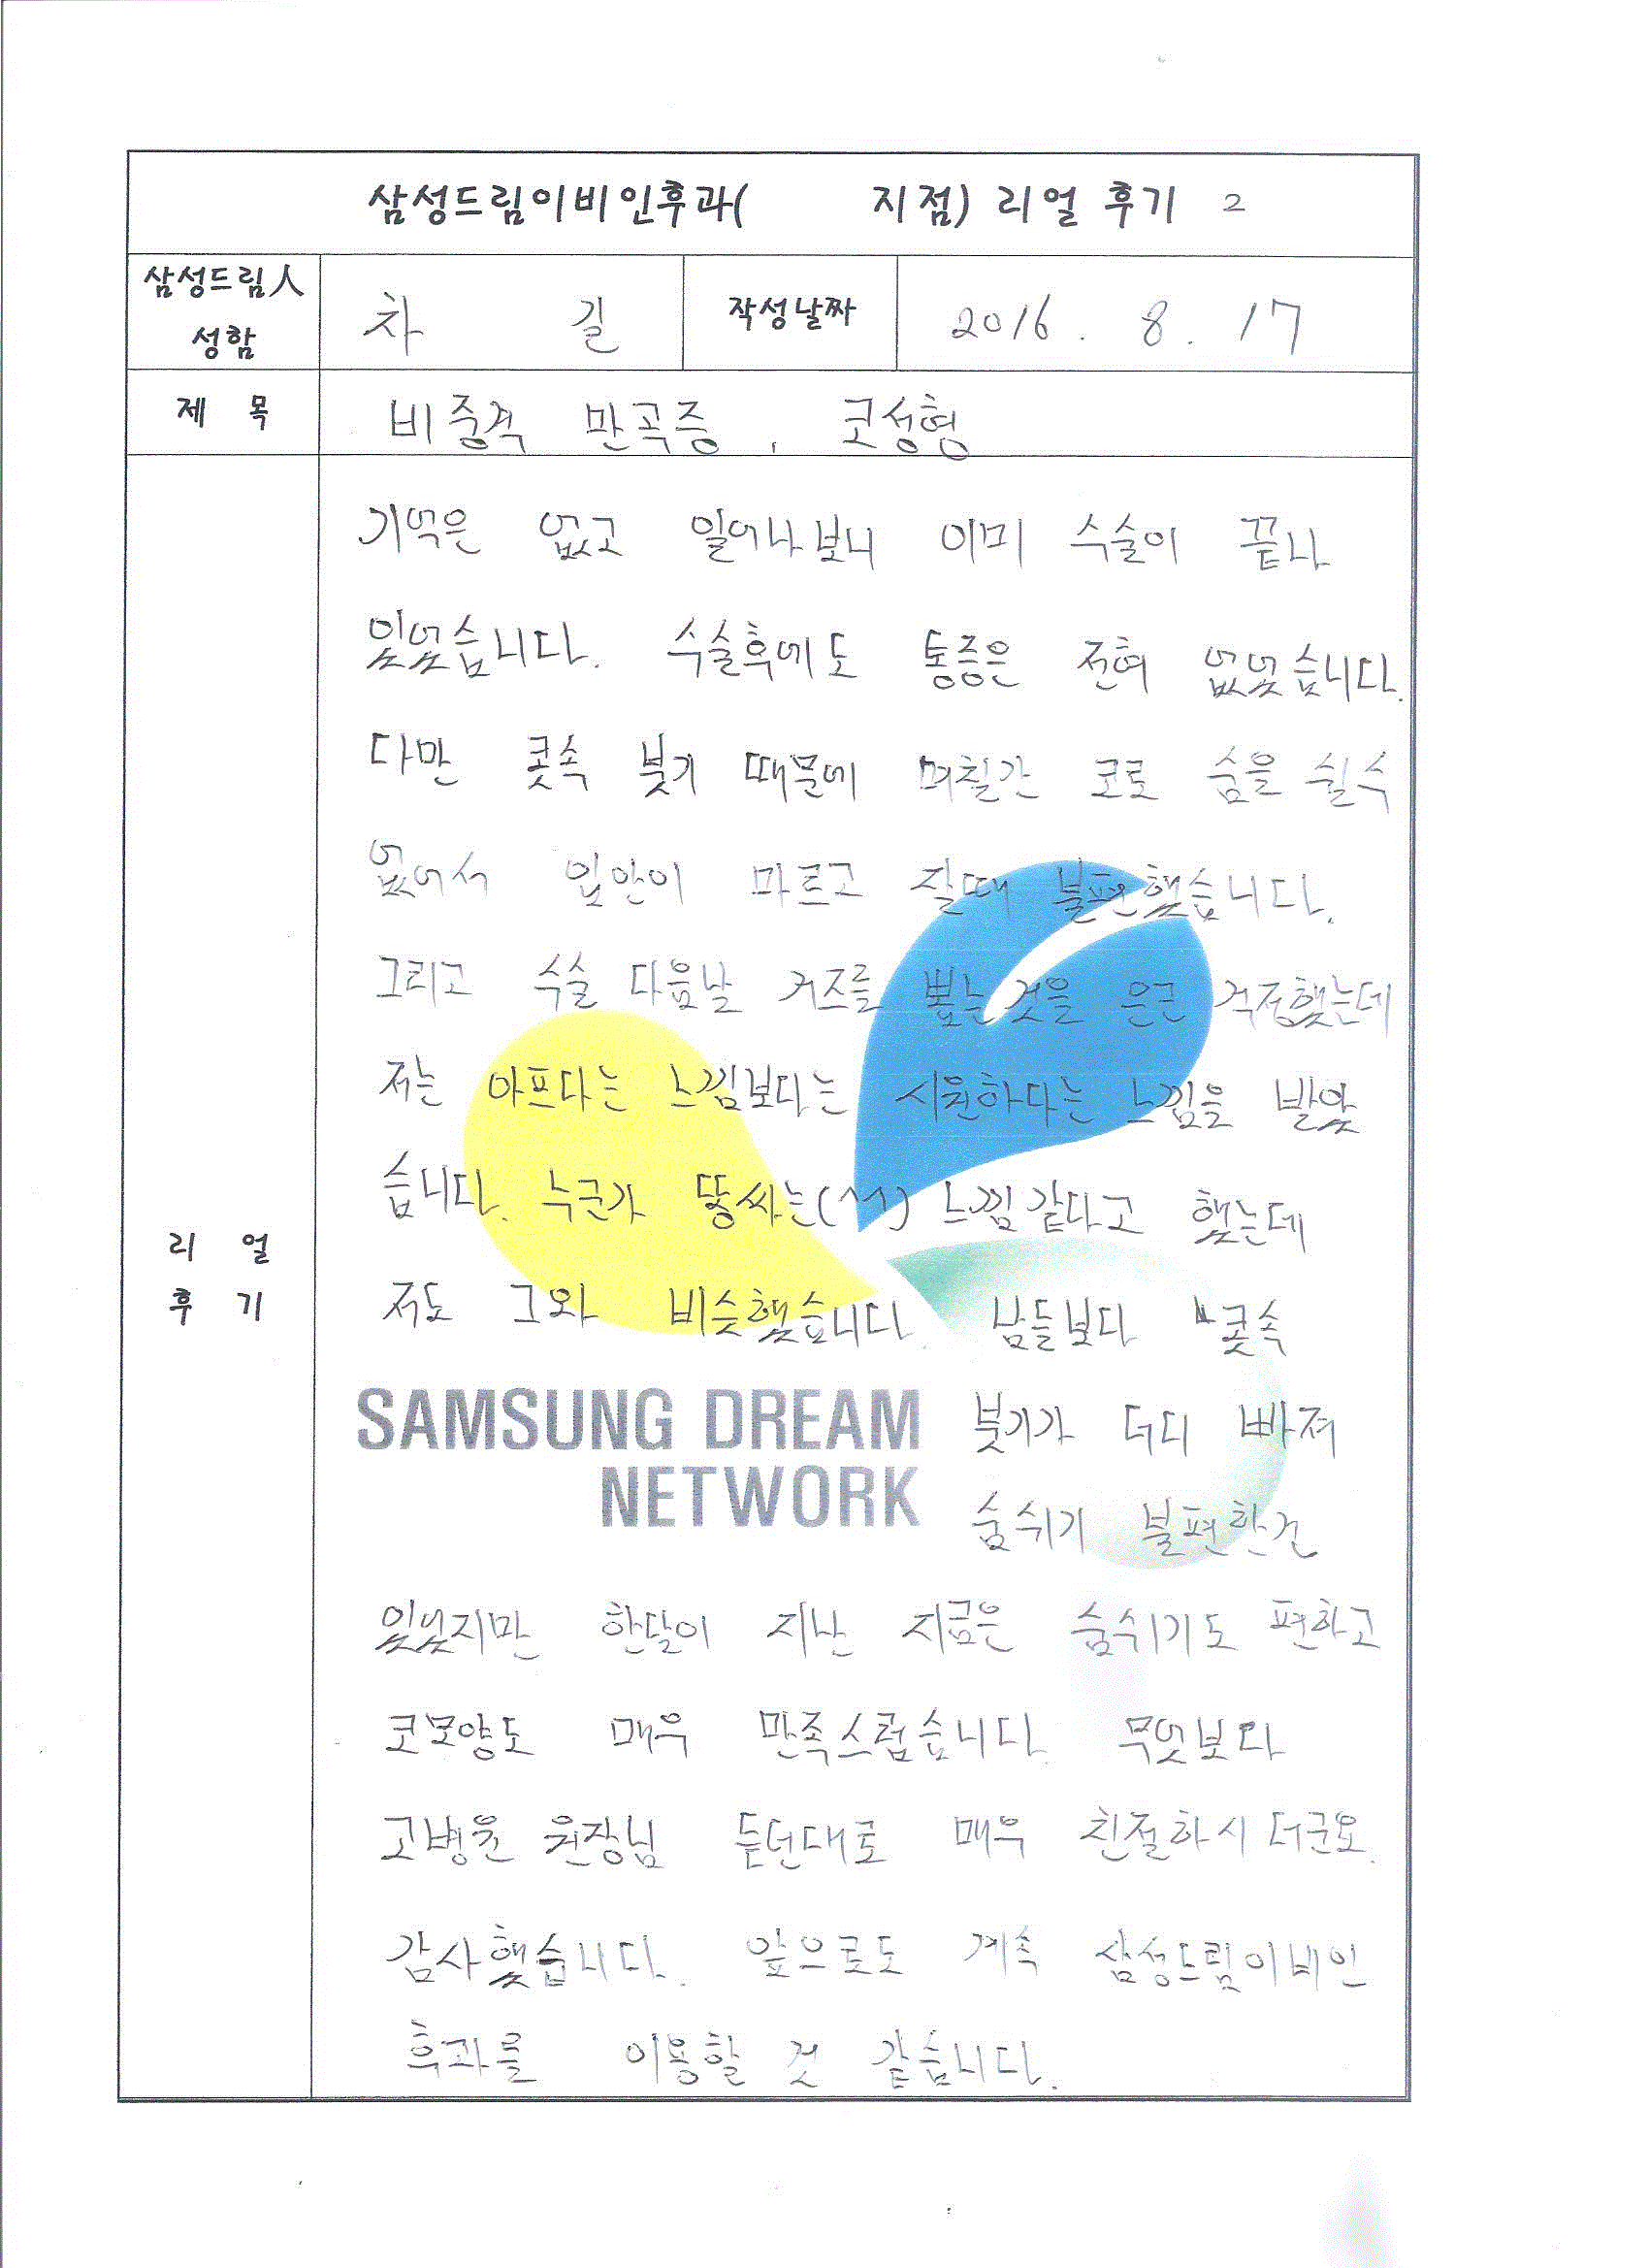 삼성드림이비인후과(          지점) 리얼 후기 2
삼성드림人 성함
차 길
작성날짜
2016. 8. 17
제 목
비중격 만곡증, 코성형
리 얼
후 기
기억은 없고 일어나보니 이미 수술이 끝나
있었습니다. 수술후에도 통증은 전혀 없었습니다.
다만 콧속 붓기 때문에 며칠간 코로 숨을 쉴수
없어서 입안이 마르고 잘때 불편했습니다.
그리고 수술 다음날 거즈를 뽑는 것을 은근 걱정했는데
저는 아프다는 느낌보다는 시원하다는 느낌을 받았
습니다. 누군가 똥싸는(^^) 느낌같다고 했는데
저도 그와 비슷했습니다. 남들보다 콧속
SAMSUNG DREAM
NETWORK
붓기가 더디 빠져
숨쉬기 불편한건
있었지만 한달이 지난 지금은 숨쉬기도 편하고
코모양도 매우 만족스럽습니다. 무엇보다
고병윤 원장님 듣던대로 매우 친절하시더군요.
감사했습니다. 앞으로도 계속 삼성드림이비인
후과를 이용할 것 같습니다.